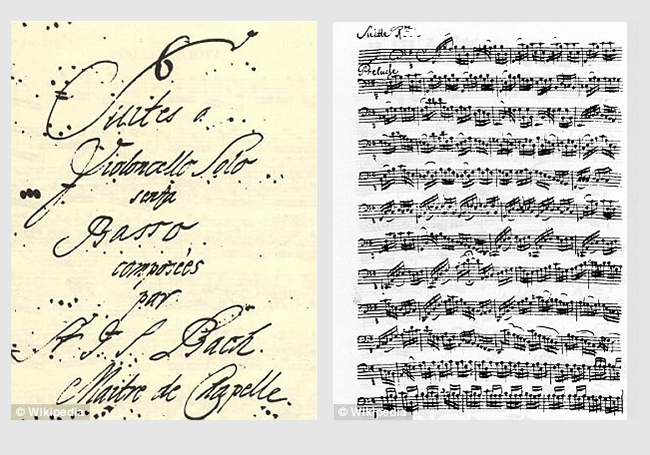 6
Suites a
Violoncello Solo
senza
Basso
composées
par
S.r J. S. Bach.
Maitre de Chapelle.
© Wikipedia
Suitte 1.re
Prelude
© Wikipedia